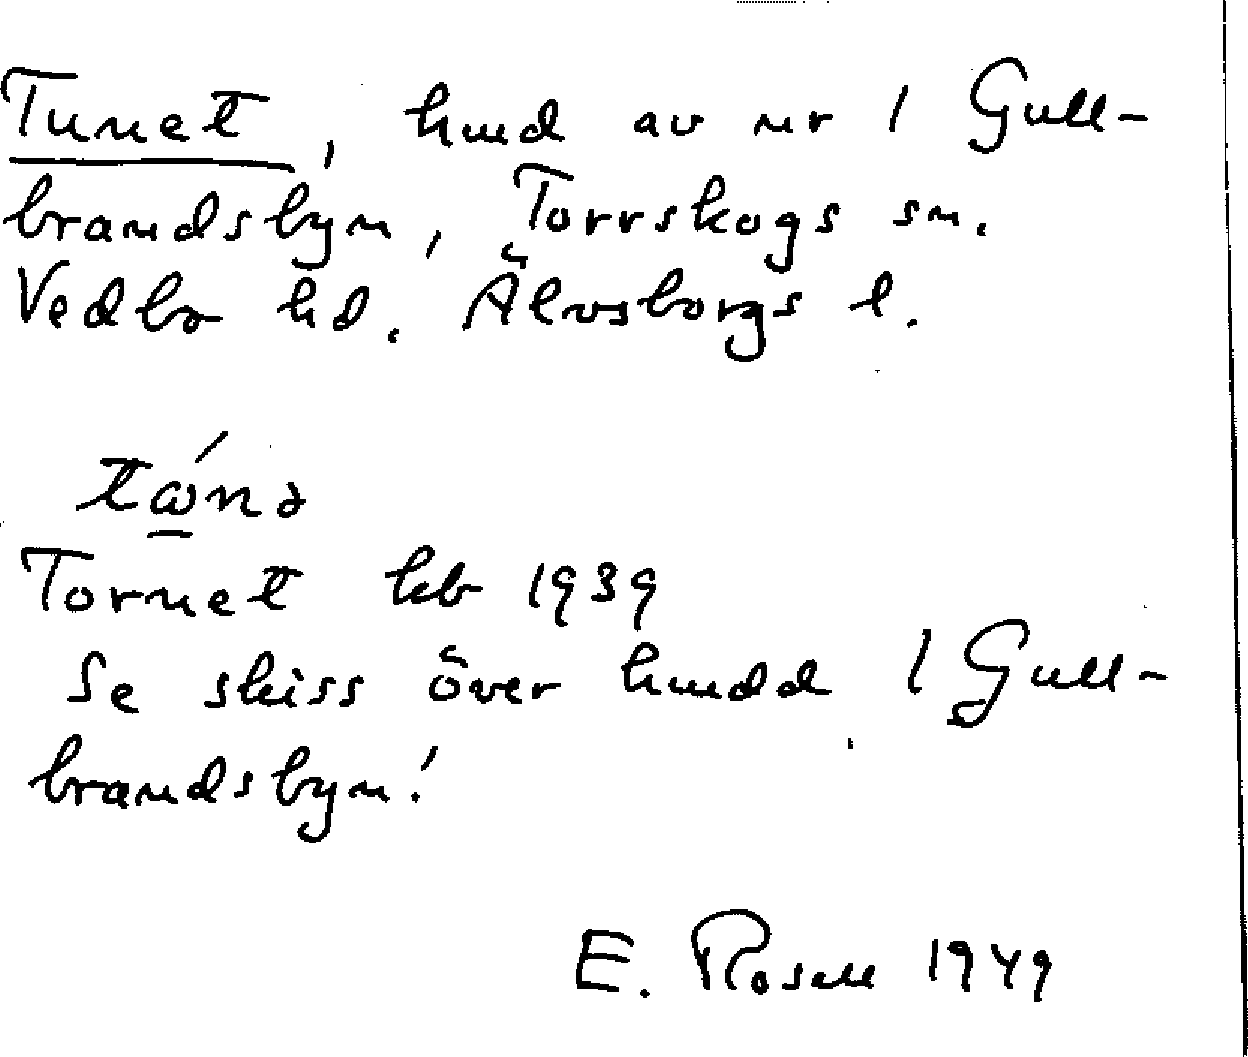 Tunet, hmd av nr 1 Gull-
brandsbyn, Torrskogs sn.
Vedbo hd. Älvsborgs l.
tώ̲nə
Tornet kb 1939
Se skiss över hmdd 1 Gull-
brandsbyn!
E. Rosell 1949